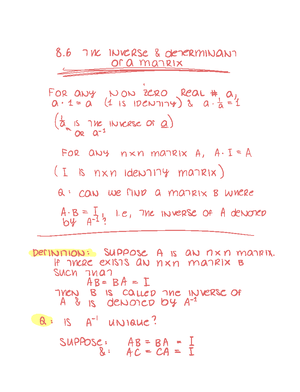 8.6 THE INVERSE & DETERMINANT
OF A MATRIX
FOR ANY NON ZERO REAL # a,
a · 1 = a (1 IS IDENTITY) & a · 1/a = 1
(1/a IS THE INVERSE OF a)
OR a⁻¹
FOR ANY n×n MATRIX A, A · I = A
(I IS n×n IDENTITY MATRIX)
Q: CAN WE FIND A MATRIX B WHERE
A · B = I, i.e., THE INVERSE OF A DENOTED
BY A⁻¹?
DEFINITION: SUPPOSE A IS AN n×n MATRIX.
IF THERE EXISTS AN n×n MATRIX B
SUCH THAT
AB = BA = I
THEN B IS CALLED THE INVERSE OF
A & IS DENOTED BY A⁻¹
Q: IS A⁻¹ UNIQUE?
SUPPOSE: AB = BA = I
&: AC = CA = I